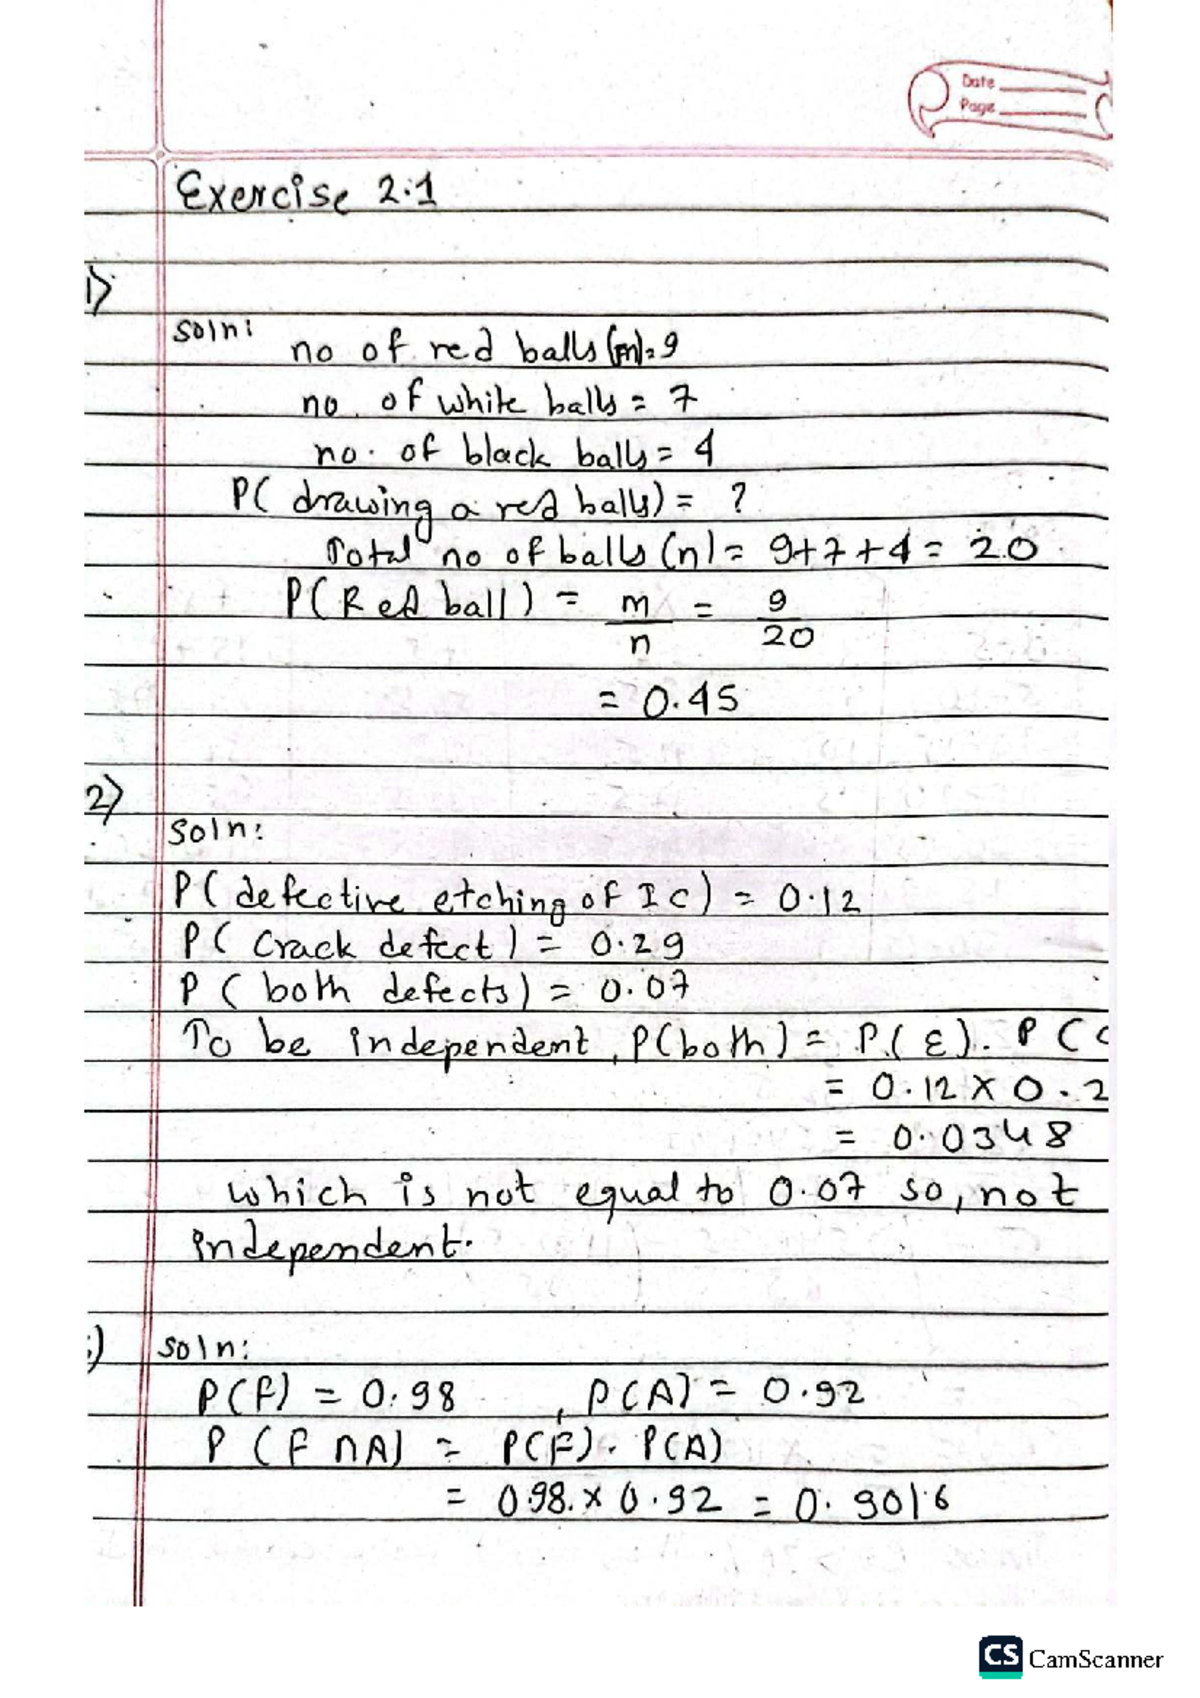 Date
Page
Exercise 2.1
1)
Soln:
no of red balls (m) = 9
no. of white balls = 7
no. of black balls = 4
P( drawing a red balls) = ?
Total no of balls (n) = 9+7+4 = 20
P(Red ball) = m/n = 9/20
= 0.45
2)
Soln:
P( defective etching of IC) = 0.12
P( Crack defect) = 0.29
P ( both defects) = 0.07
To be independent, P(both) = P(E). P(C
= 0.12 x 0.2
= 0.0348
which is not equal to 0.07 so, not
independent.
) Soln:
P(F) = 0.98 , P(A) = 0.92
P (F ∩ A) = P(F). P(A)
= 0.98 x 0.92 = 0.9016
CS CamScanner